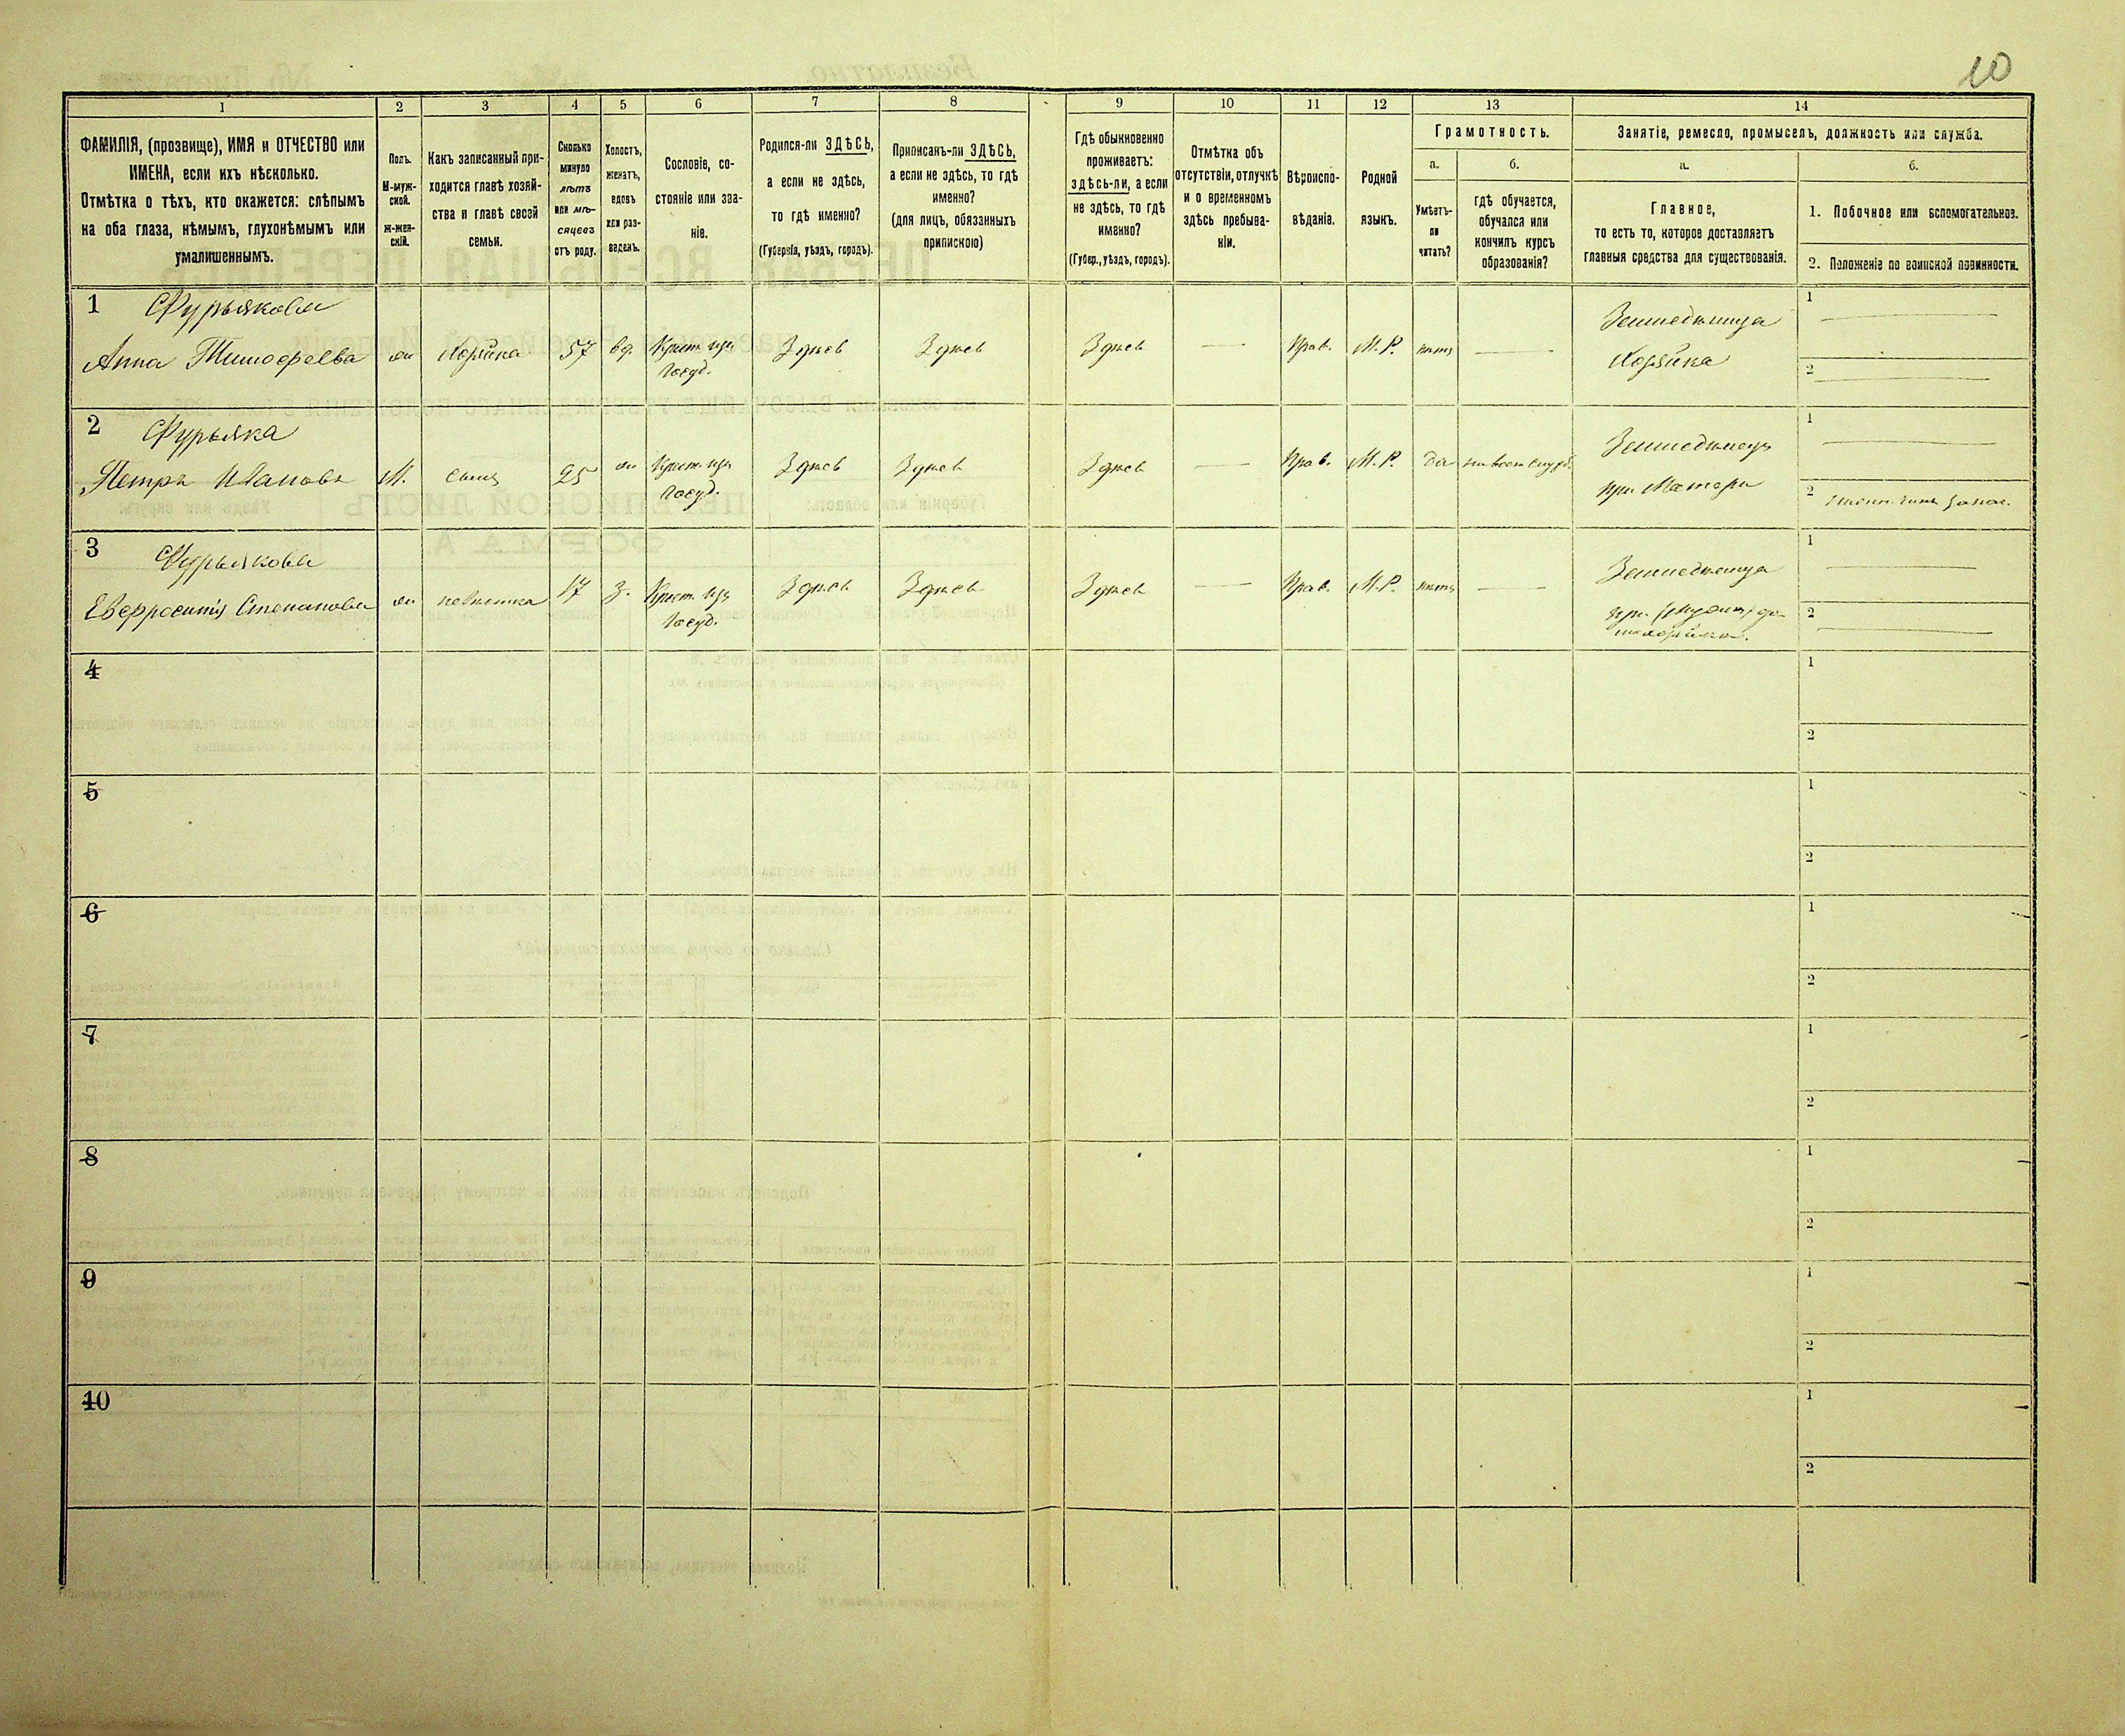 10
1 2 3 4 5 6 7 8 9 10 11 12 13 14
ФАМИЛІЯ, (прозвище), ИМЯ и ОТЧЕСТВО или
ИМЕНА, если ихъ нѣсколько.
Отмѣтка о тѣхъ, кто окажется: слѣпымъ
на оба глаза, нѣмымъ, глухонѣмымъ или
умалишеннымъ.
Полъ.
М-муж-
ской.
ж-жен-
скій.
Какъ записанный при-
ходится главѣ хозяй-
ства и главѣ своей
семьи.
Сколько
минуло
лѣтъ
или мѣ-
сяцевъ
отъ роду.
Холостъ,
женатъ,
вдовъ
или раз-
веденъ.
Сословіе, со-
стояніе или зва-
ніе.
Родился-ли ЗДѢСЬ,
а если не здѣсь,
то гдѣ именно?
(Губернія, уѣздъ, городъ).
Приписанъ-ли ЗДѢСЬ,
а если не здѣсь, то гдѣ
именно?
(для лицъ, обязанныхъ
припискою)
Гдѣ обыкновенно
проживаетъ:
здѣсь-ли, а если
не здѣсь, то гдѣ
именно?
(Губер., уѣздъ, городъ).
Отмѣтка объ
отсутствіи, отлучкѣ
и о временномъ
здѣсь пребыва-
ніи.
Вѣроиспо-
вѣданіе.
Родной
языкъ.
Грамотность.
а. б.
Умѣетъ-
ли
читать?
гдѣ обучается,
обучался или
кончилъ курсъ
образованія?
Занятіе, ремесло, промыселъ, должность или служба.
а. б.
Главное,
то есть то, которое доставляетъ
главныя средства для существованія.
1. Побочное или вспомогательное.
2. Положеніе по воинской повинности.
1 Фурьякова
Анна Тимофеева
Хозяйка 57 вд. Крест. изъ
Госуд.
Здѣсь Здѣсь Здѣсь Прав. М.Р. нѣтъ
Земледѣлица
Хозяйка
1
2
2 Фурьяка
Петръ Ивановъ М. сынъ 25 Крест. изъ
Госуд.
Здѣсь Здѣсь Здѣсь Прав. М.Р. Да
Земледѣлецъ
при Матери
1
2
3 Фурьякова
Евфросинія Степанова невѣстка 17 З. Крест. изъ
Госуд.
Здѣсь Здѣсь Здѣсь Прав. М.Р. нѣтъ
Земледѣлица
при
1
2
4 1
2
5 1
2
6 1
2
7 1
2
8 1
2
9 1
2
10 1
2